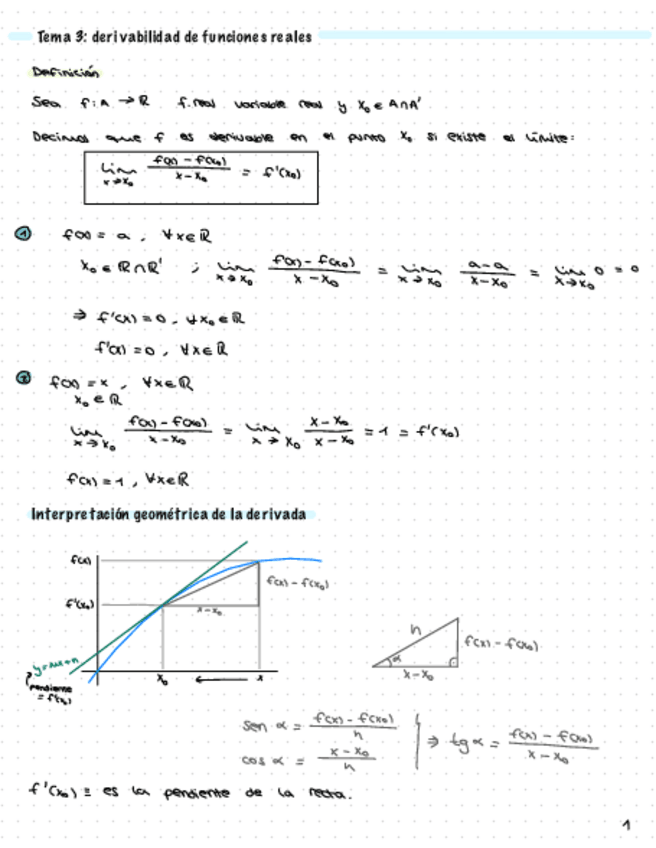 Tema 3: derivabilidad de funciones reales
Definición
Sea f: A → ℝ f. real variable real y x₀ ∈ A∩A'
Decimos que f es derivable en el punto x₀ si existe el límite:
lim x→x₀ (f(x) - f(x₀))/(x - x₀) = f'(x₀)
① f(x) = a, ∀x∈ℝ
x₀ ∈ ℝ∩ℝ' ; lim x→x₀ (f(x) - f(x₀))/(x - x₀) = lim x→x₀ (a-a)/(x-x₀) = lim x→x₀ 0 = 0
⇒ f'(x) = 0, ∀x₀∈ℝ
f'(x) = 0, ∀x∈ℝ
② f(x) = x, ∀x∈ℝ
x₀ ∈ ℝ
lim x→x₀ (f(x) - f(x₀))/(x - x₀) = lim x→x₀ (x - x₀)/(x - x₀) = 1 = f'(x₀)
f(x) = 1, ∀x∈ℝ
Interpretación geométrica de la derivada
f(x)
f(x) - f(x₀)
f'(x₀)
x - x₀
h
f(x) - f(x₀)
α
x - x₀
y = mx+n
x₀ ← x
pendiente
= f'(x₀)
sen α = (f(x) - f(x₀))/h
cos α = (x - x₀)/h
⇒ tg α = (f(x) - f(x₀))/(x - x₀)
f'(x₀) ≡ es la pendiente de la recta.
1